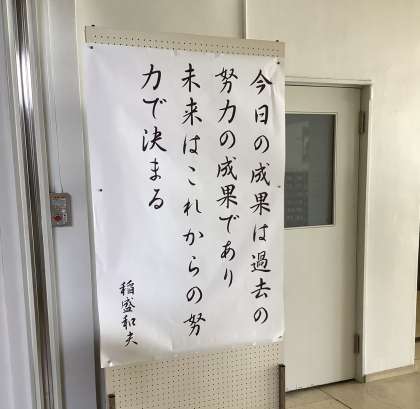 今日の成果は過去の
努力の成果であり
未来はこれからの努
力で決まる
稲盛和夫